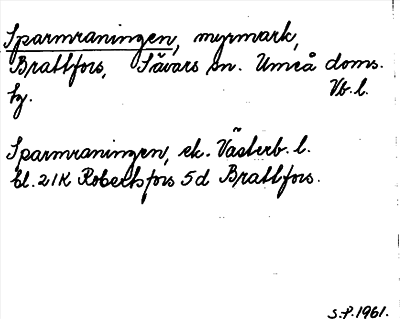 Sparmraningen, myrmark,
Brattfors, Sävars sn. Umeå doms.
hg. Vb.l.
Sparmraningen, ek. Västerb. l.
bl. 21K Robertsfors 5d Brattfors.
S.P. 1961.